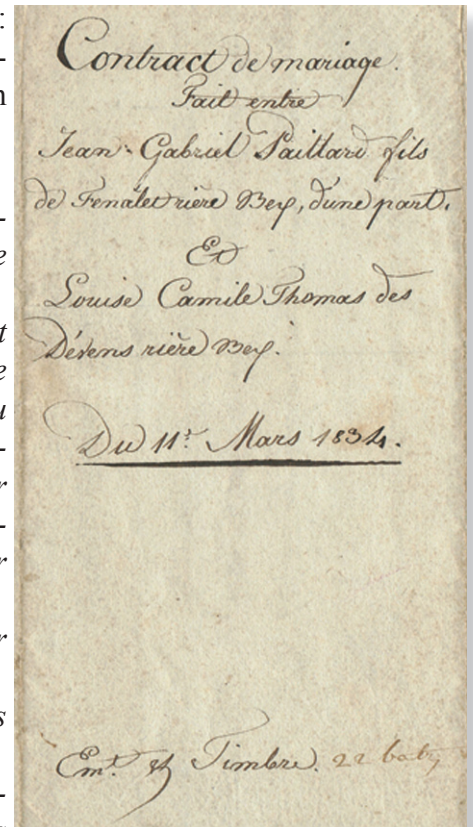 Contract de mariage.
Fait entre
Jean-Gabriel Paillard fils
de Fenalet rière Bex, d'une part.
Et
Louise Camile Thomas des
Dévens rière Bex.
Du 11.e Mars 1834.
Em.t & Timbre. 22 batz